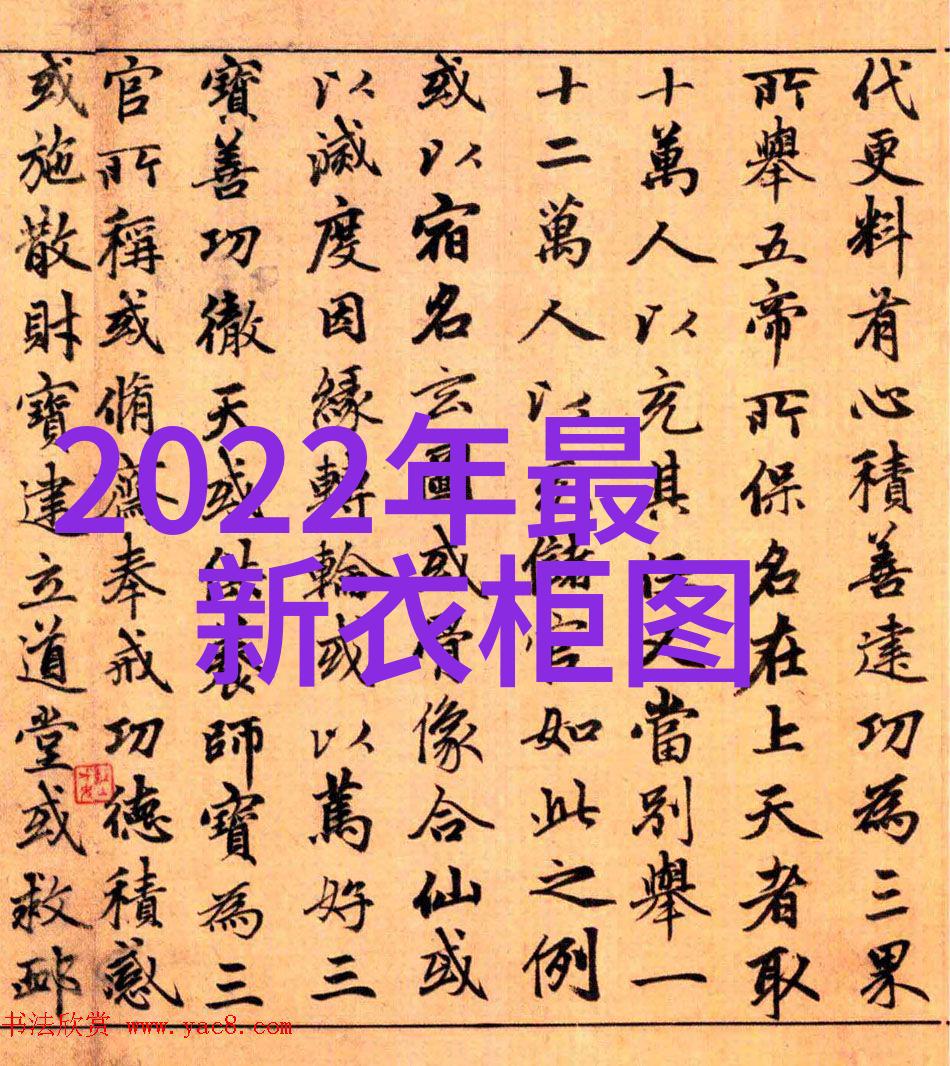 代更料有心積善建功為三果
所舉五帝所保名在上天者取
十萬人以充其又當別舉一
十二萬人以儲官如此之例
或以宿名玄圖或骨像合仙或
以滅度因緣轉輪或以篤好三
寶善功徹天或供養師寶為三
官所稱或脩齋奉戒功德積感
或施散財寶建立道堂或救卹
2022年最
新衣柜图
书法欣赏 www.yac8.com